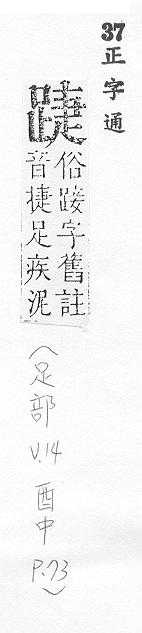 37
正字通
俗字舊註
音捷足疾泥
(足部 V.14 酉中 P.73)